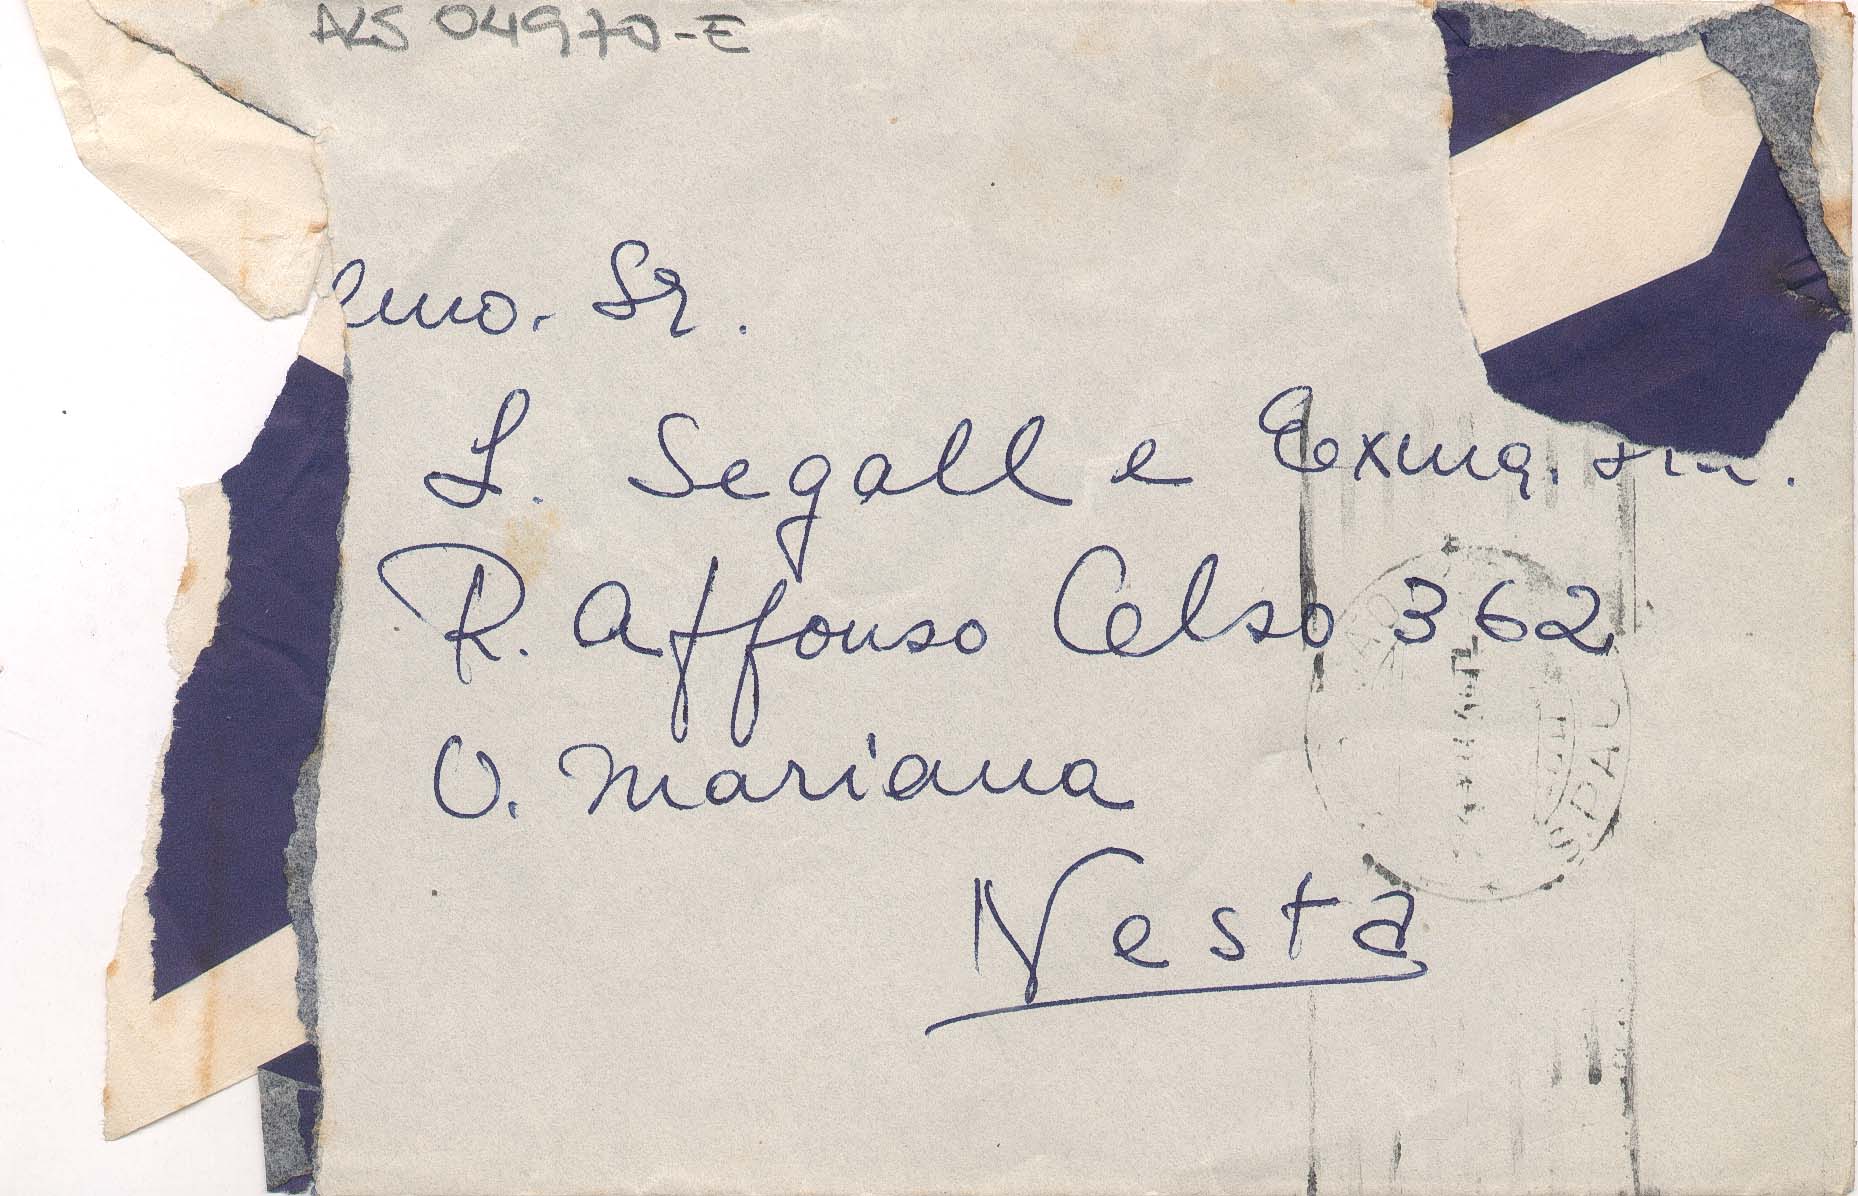 ALS 04970-E
lmo. Sr.
L. Segall e Exma. Sra.
R. Affonso Celso 362
V. Mariana
Nesta
S. PAUL